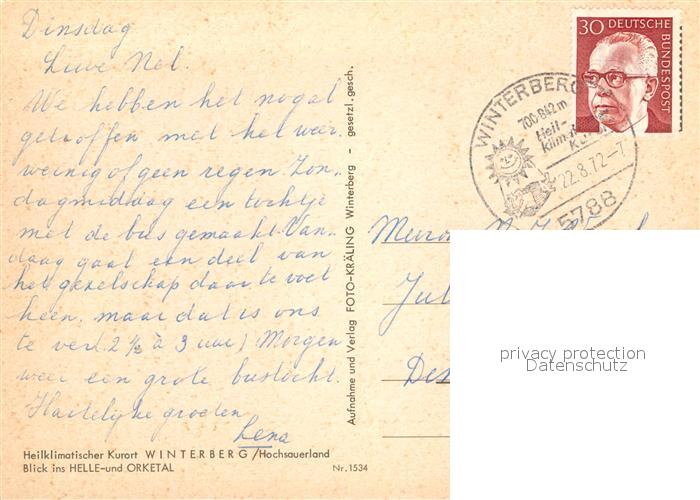 Dinsdag
Lieve Nel.
We hebben het nogal
getroffen met het weer
weinig of geen regen. Zon-
dagmiddag een tochtje
met de bus gemaakt. Van-
daag gaat een deel van
het gezelschap daar te voet
heen, maar dat is ons
te ver (2 ½ à 3 uur) Morgen
weer een grote bustocht.
Hartelijke groeten
Lena
Heilklimatischer Kurort WINTERBERG/Hochsauerland
Blick ins HELLE-und ORKETAL
Nr. 1534
Aufnahme und Verlag FOTO-KRÄLING Winterberg - gesetzl. gesch.
30 DEUTSCHE
BUNDESPOST
WINTERBERG
700-842 m
Heil-
klim.
22.8.72-7
5788
Jul
Des
privacy protection
Datenschutz